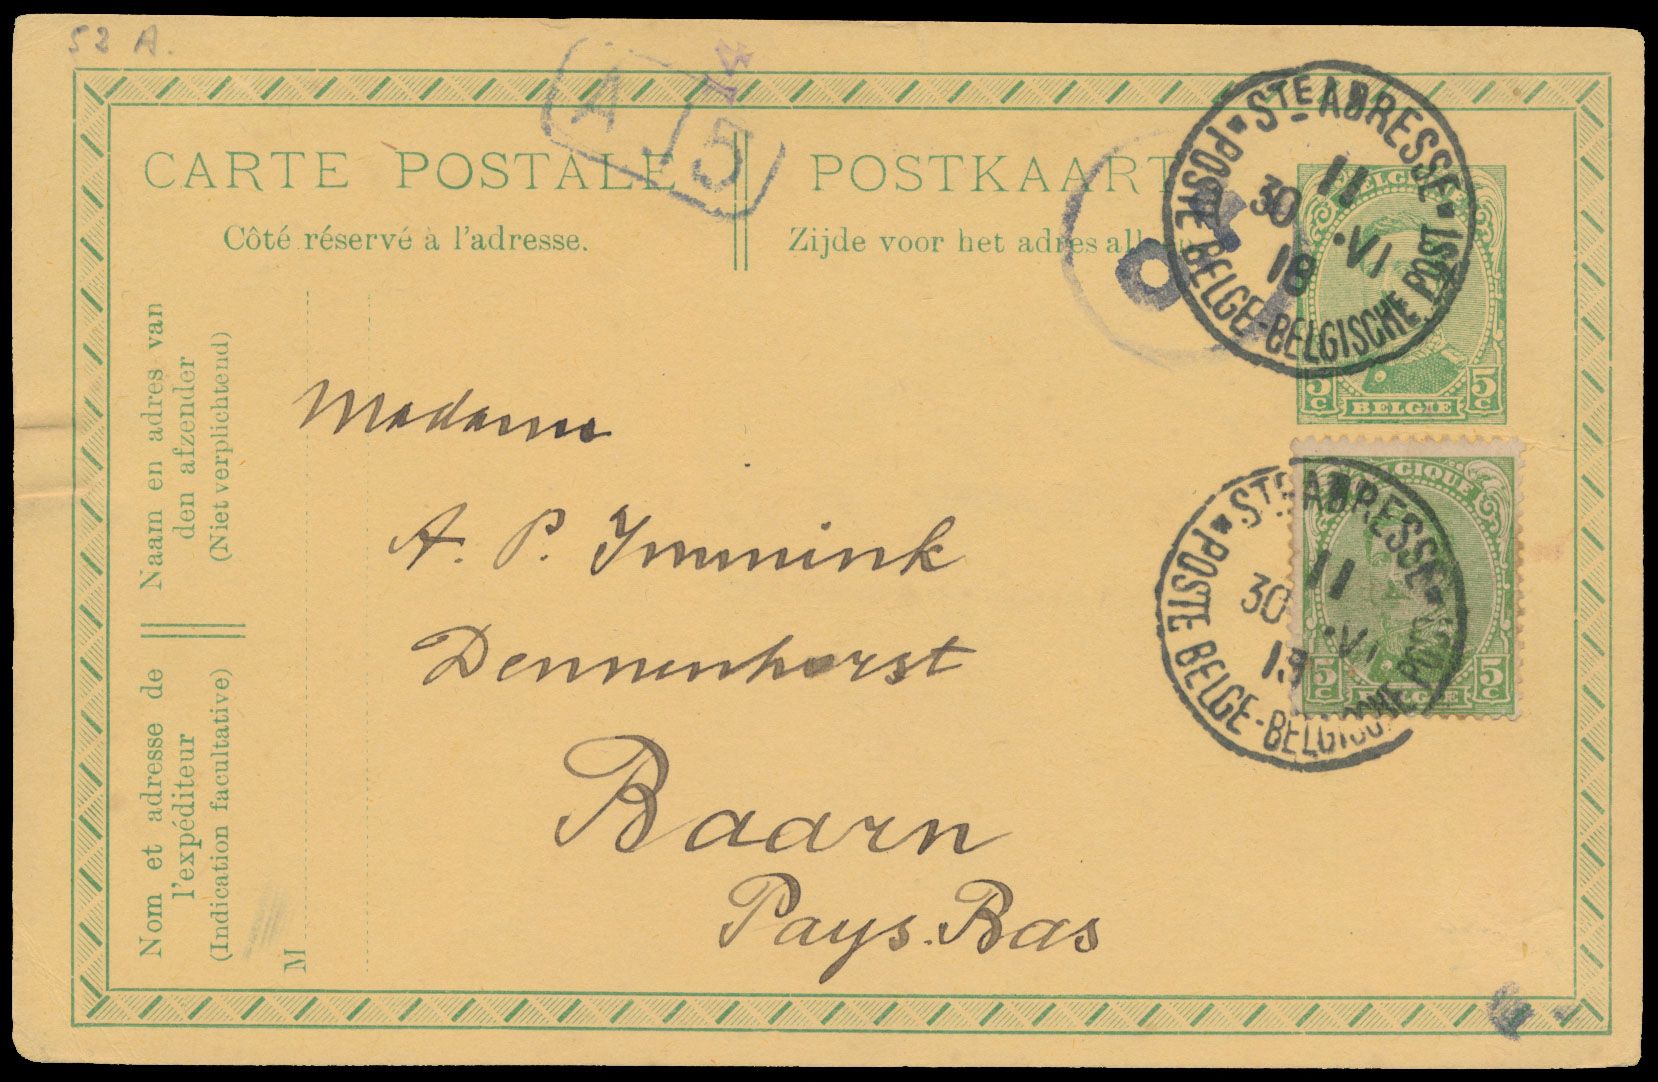 52 A.
A 5
CARTE POSTALE
Côté réservé à l'adresse.
POSTKAART
Zijde voor het adres
STE ADRESSE
11
30 VI
18
POSTE BELGE-BELGISCHE POST
BELGIE
5c BELGIE 5c
BELGIQUE
5c BELGIE 5c
STE ADRESSE
11
30 VI
POSTE BELGE-BELGISCHE POST
Naam en adres van
den afzender
(Niet verplichtend)
Nom et adresse de
l'expéditeur
(Indication facultative)
M
Madame
A. P. Immink
Dennenhorst
Baarn
Pays-Bas